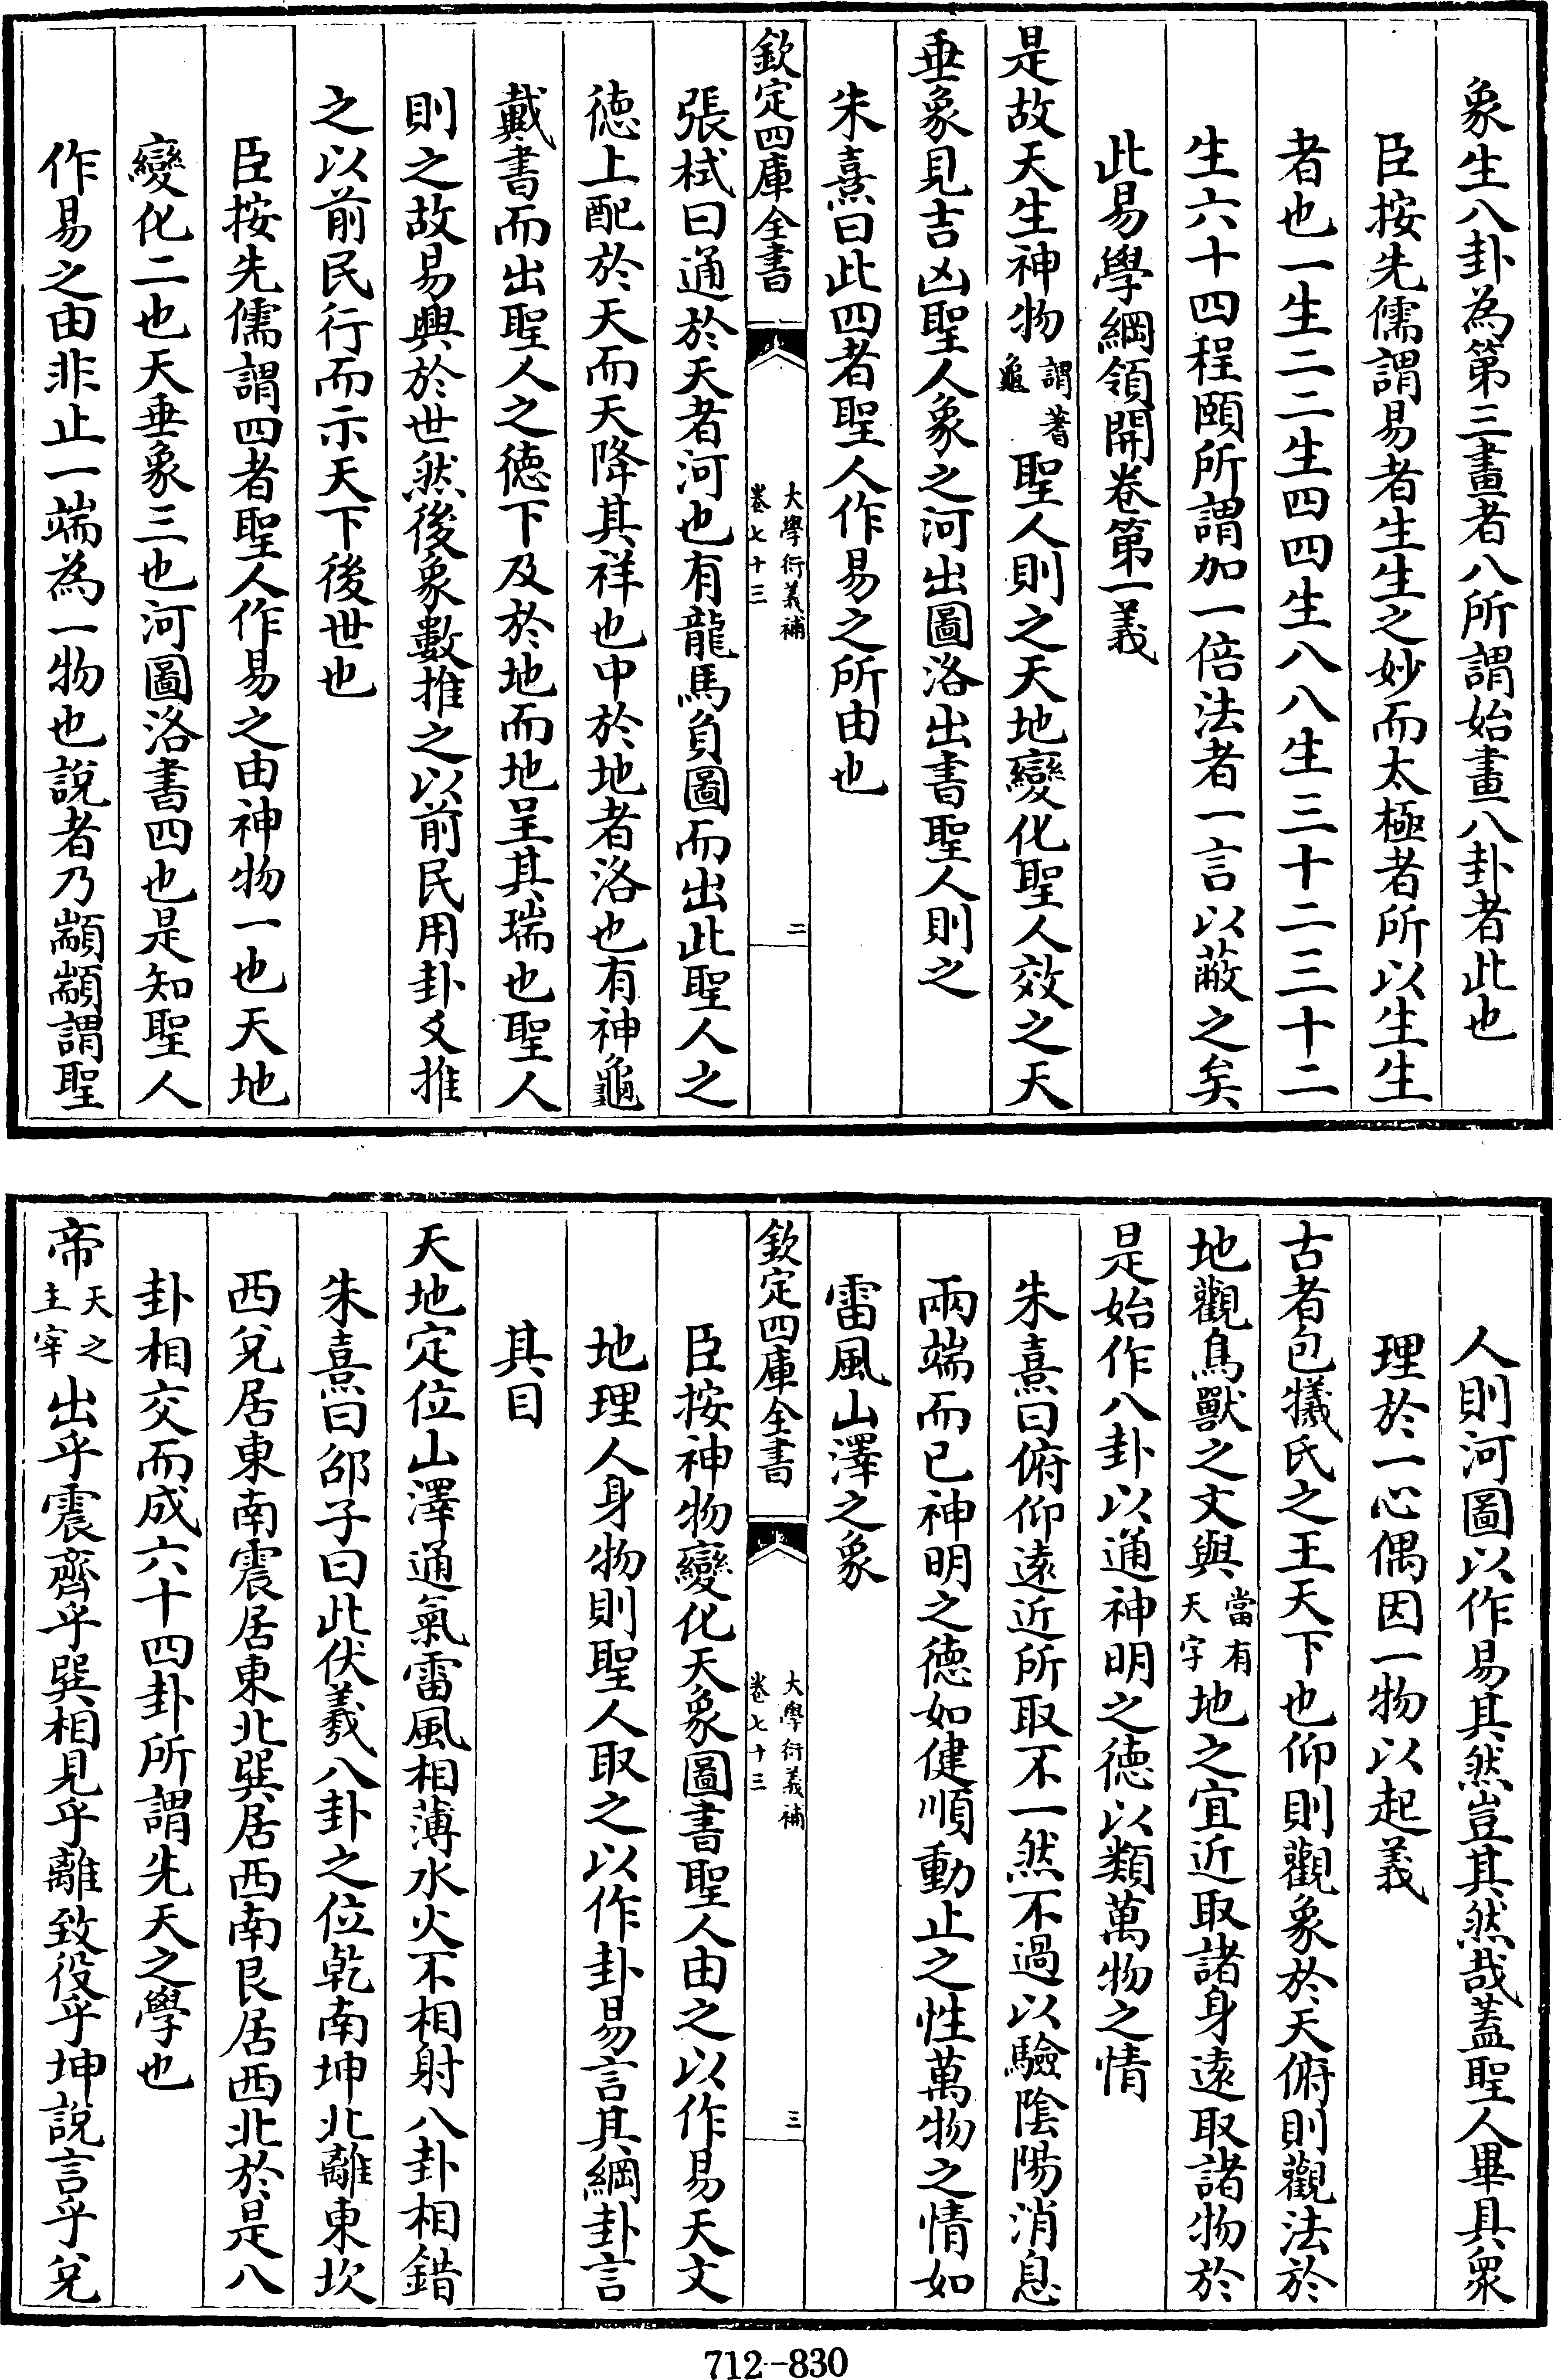 象生八卦為第三畫者八所謂始畫八卦者此也
臣按先儒謂易者生生之妙而太極者所以生生
者也一生二二生四四生八八生三十二三十二
生六十四程頤所謂加一倍法者一言以蔽之矣
此易學綱領開卷第一義
是故天生神物謂蓍龜聖人則之天地變化聖人效之天
垂象見吉凶聖人象之河出圖洛出書聖人則之
朱熹曰此四者聖人作易之所由也
欽定四庫全書
大學衍義補
卷七十三
二
張栻曰通於天者河也有龍馬負圖而出此聖人之
德上配於天而天降其祥也中於地者洛也有神龜
戴書而出聖人之德下及於地而地呈其瑞也聖人
則之故易興於世然後象數推之以前民用卦爻推
之以前民行而示天下後世也
臣按先儒謂四者聖人作易之由神物一也天地
變化二也天垂象三也河圖洛書四也是知聖人
作易之由非止一端為一物也說者乃顓顓謂聖
人則河圖以作易其然豈其然哉蓋聖人畢具衆
理於一心偶因一物以起義
古者包犧氏之王天下也仰則觀象於天俯則觀法於
地觀鳥獸之文與當有天字地之宜近取諸身遠取諸物於
是始作八卦以通神明之德以類萬物之情
朱熹曰俯仰遠近所取不一然不過以驗陰陽消息
兩端而已神明之德如健順動止之性萬物之情如
雷風山澤之象
欽定四庫全書
大學衍義補
卷七十三
三
臣按神物變化天象圖書聖人由之以作易天文
地理人身物則聖人取之以作卦易言其綱卦言
其目
天地定位山澤通氣雷風相薄水火不相射八卦相錯
朱熹曰邵子曰此伏羲八卦之位乾南坤北離東坎
西兌居東南震居東北巽居西南艮居西北於是八
卦相交而成六十四卦所謂先天之學也
帝天之主宰出乎震齊乎巽相見乎離致役乎坤說言乎兌
712-830